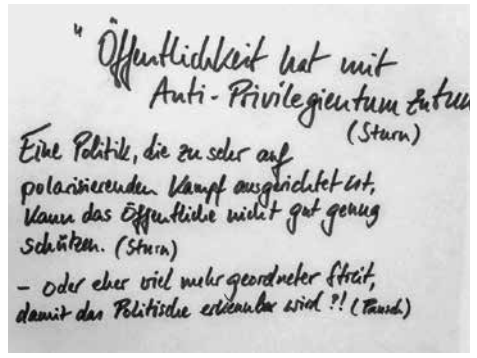 " Öffentlichkeit hat mit
Anti-Privilegientum zutun
(Sturn)
Eine Politik, die zu sehr auf
polarisierenden Kampf ausgerichtet ist,
kann das Öffentliche nicht gut genug
schützen. (Sturn)
- oder eher viel mehr geordneter Streit,
damit das Politische erkennbar wird ?! (Pausch)